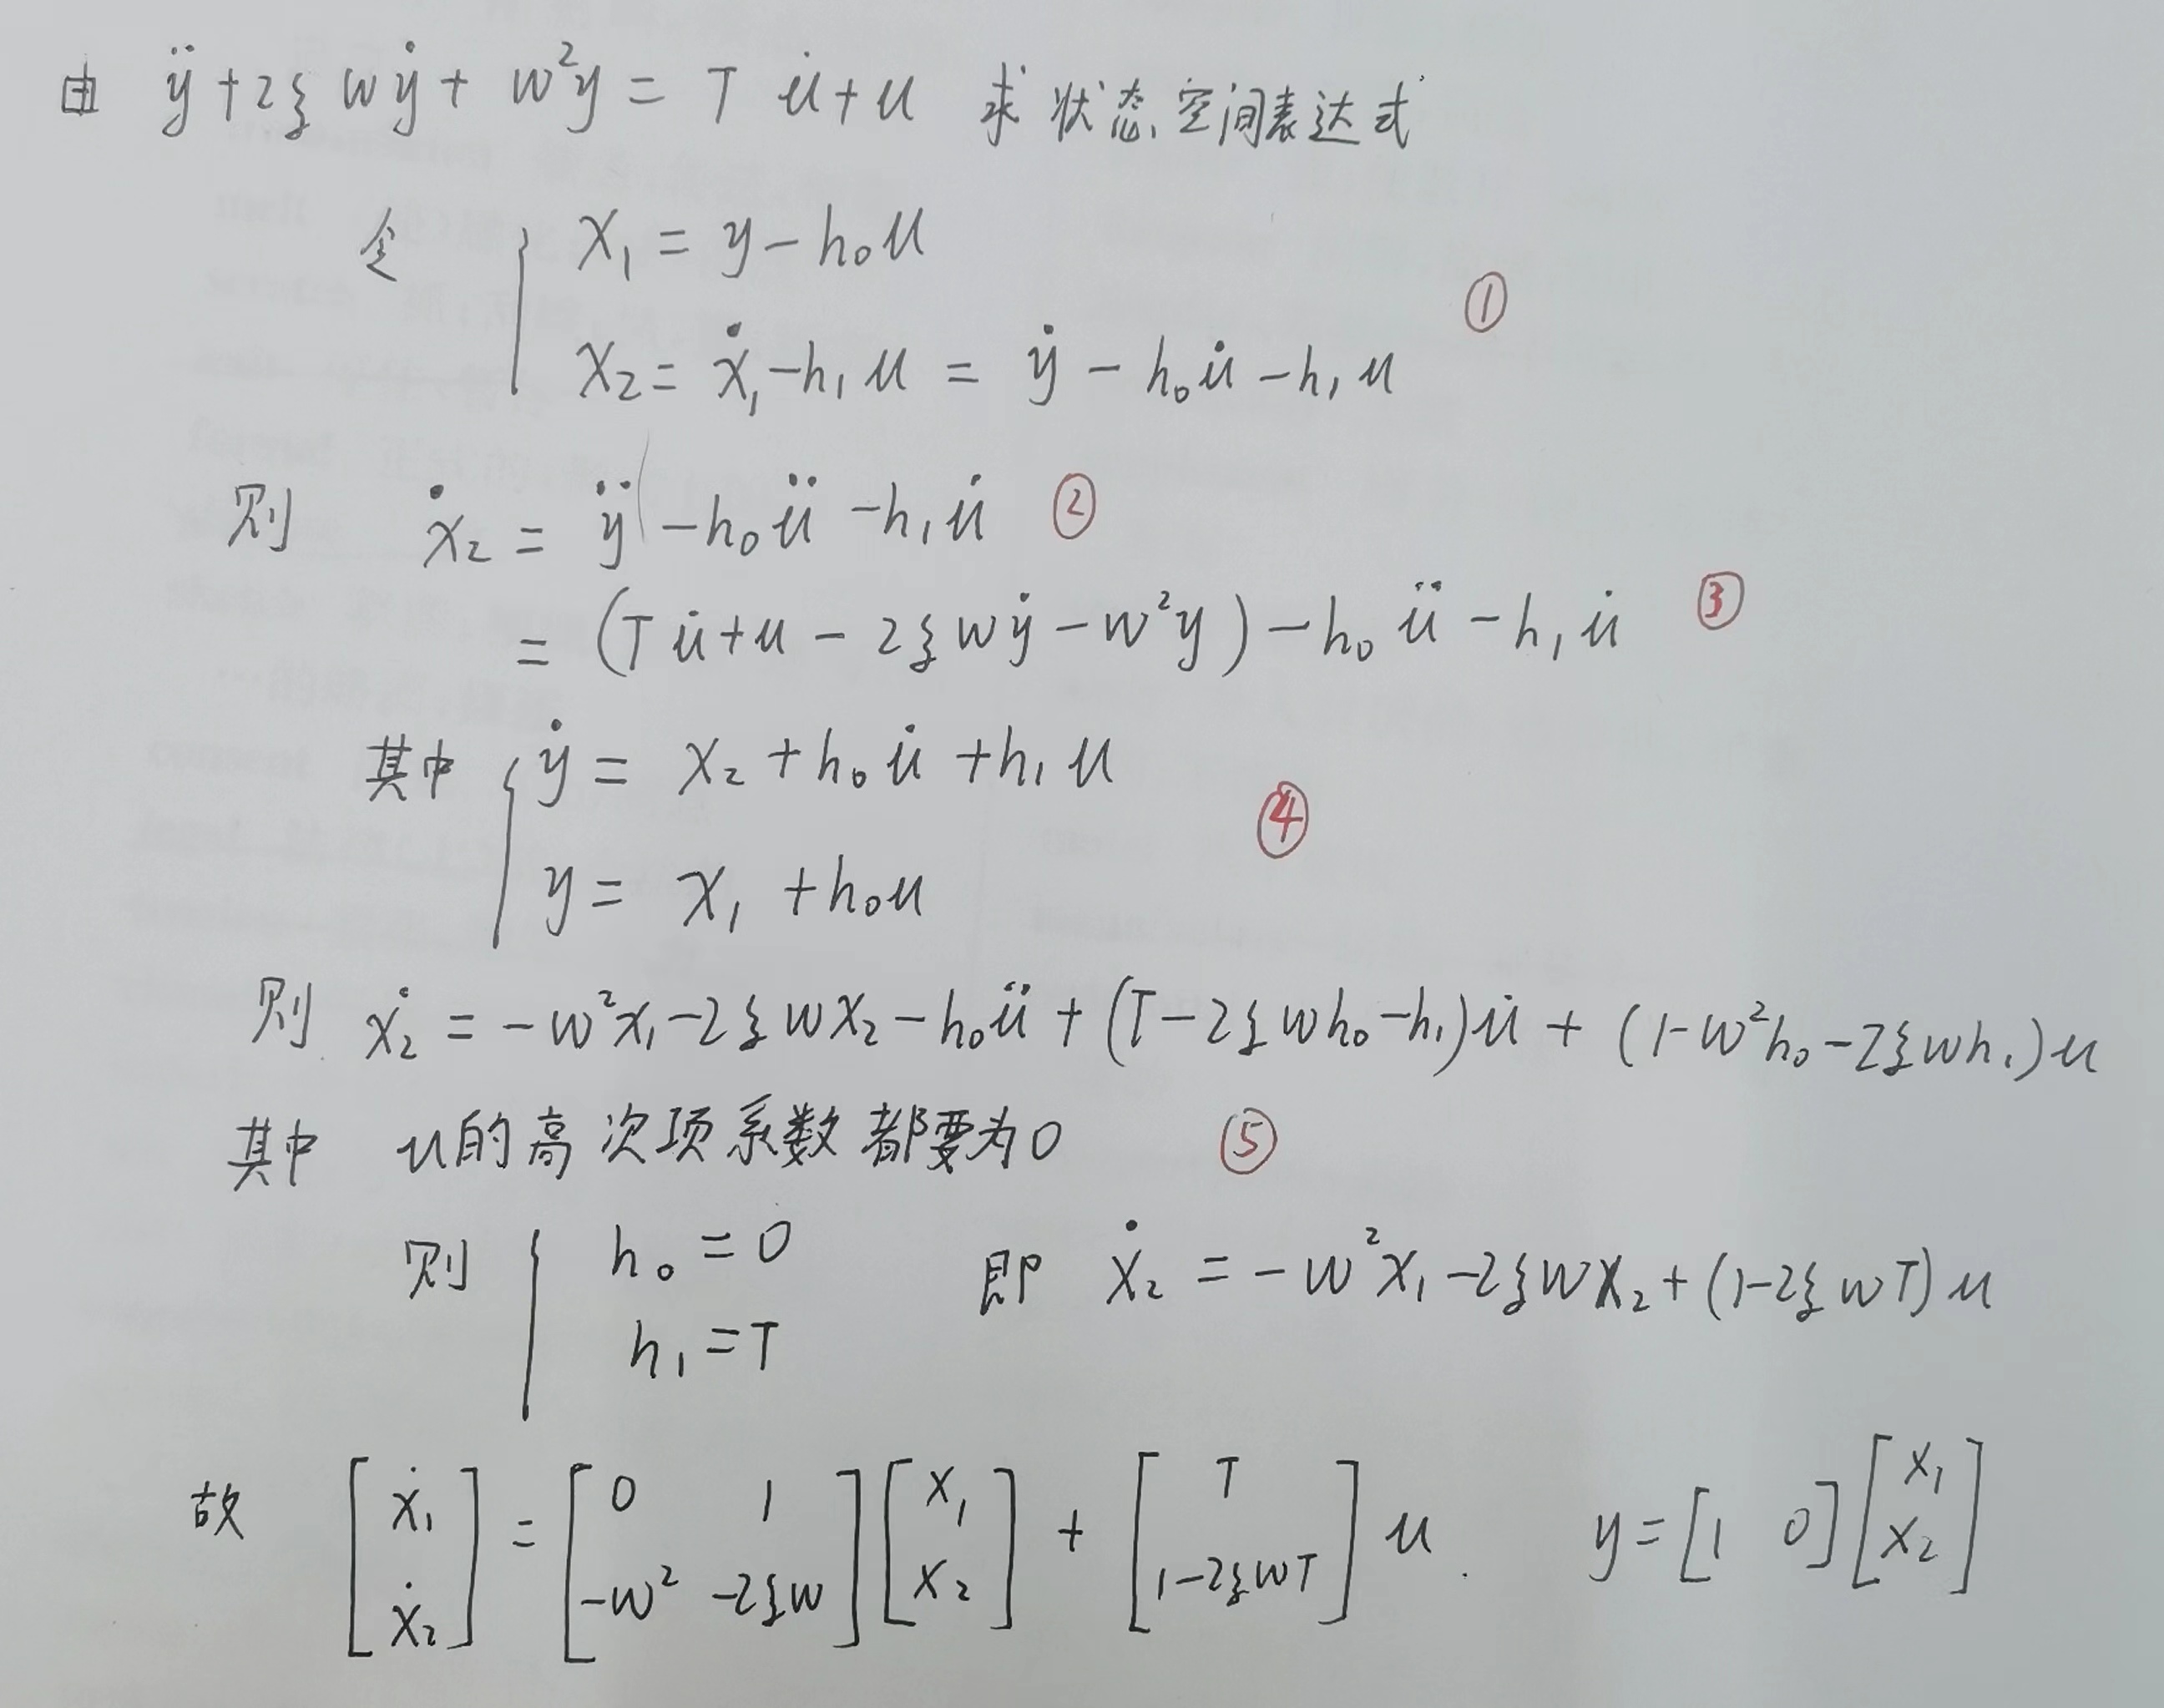 由 ÿ + 2ξwẏ + w²y = T u̇ + u 求状态空间表达式
令 { x₁ = y - h₀u
x₂ = ẋ₁ - h₁u = ẏ - h₀u̇ - h₁u ①
则 ẋ₂ = ÿ - h₀ü - h₁u̇ ②
= (T u̇ + u - 2ξwẏ - w²y) - h₀ü - h₁u̇ ③
其中 { ẏ = x₂ + h₀u̇ + h₁u
y = x₁ + h₀u ④
则 ẋ₂ = -w²x₁ - 2ξwx₂ - h₀ü + (T - 2ξwh₀ - h₁)u̇ + (1 - w²h₀ - 2ξwh₁)u
其中 u的高次项系数都要为0 ⑤
则 { h₀ = 0 即 ẋ₂ = -w²x₁ - 2ξwx₂ + (1 - 2ξwT)u
h₁ = T
故 [ẋ₁; ẋ₂] = [0 1; -w² -2ξw] [x₁; x₂] + [T; 1-2ξwT] u. y = [1 0] [x₁; x₂]